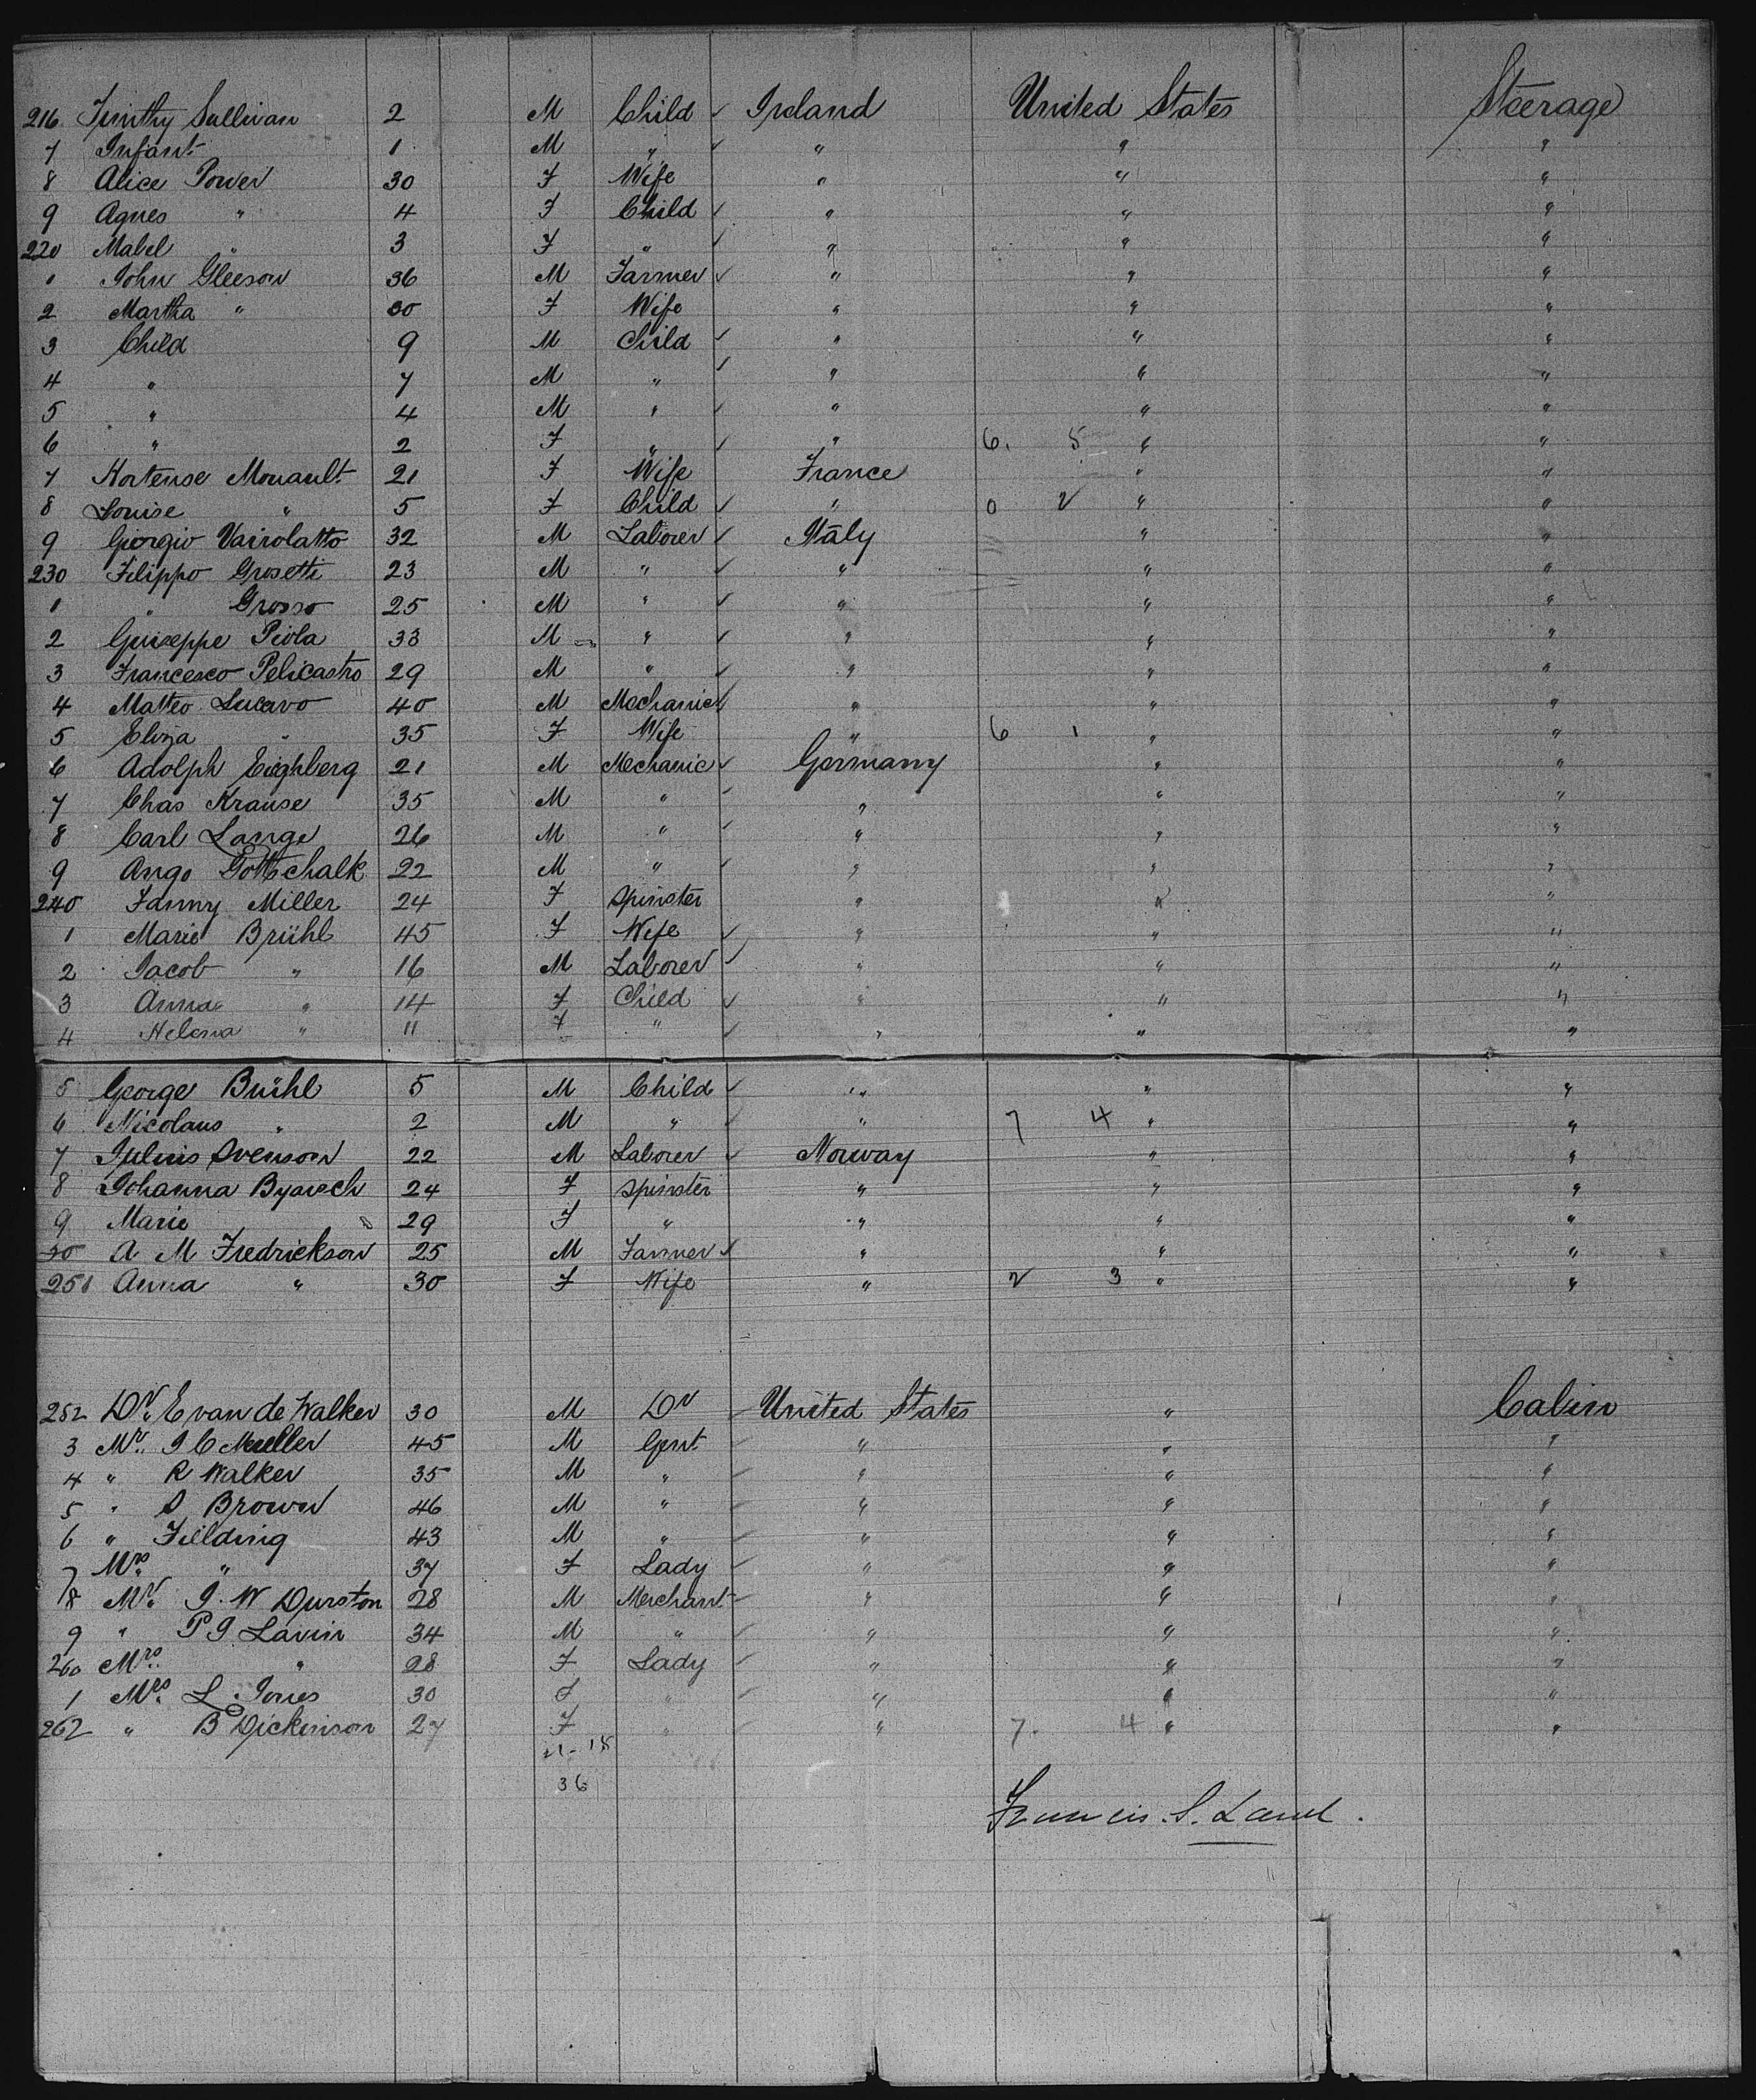 216 Timithy Sullivan 2 M Child ✓ Ireland United States Steerage
7 Infant 1 M " ✓ " " "
8 Alice Power 30 F Wife " " "
9 Agnes " 4 F Child ✓ " " "
220 Mabel " 3 F " ✓ " " "
1 John Gleeson 36 M Farmer ✓ " " "
2 Martha " 30 F Wife " " "
3 Child 9 M Child ✓ " " "
4 " 7 M " ✓ " " "
5 " 4 M " ✓ " " "
6 " 2 F " ✓ " 6. 5 " "
7 Hortense Mouault 21 F Wife France " "
8 Louise " 5 F Child ✓ " 0 2 " "
9 Giorgio Vairolatto 32 M Laborer ✓ Italy " "
230 Filippo Grosetti 23 M " ✓ " " "
1 " Grosso 25 M " ✓ " " "
2 Guiseppe Piola 33 M " ✓ " " "
3 Francesco Pelicastro 29 M " ✓ " " "
4 Matteo Lucavo 40 M Mechanic ✓ " " "
5 Eliza " 35 F Wife " 6 1 " "
6 Adolph Eighberg 21 M Mechanic ✓ Germany " "
7 Chas Krause 35 M " ✓ " " "
8 Carl Lange 26 M " ✓ " " "
9 Ango Gottschalk 22 M " ✓ " " "
240 Fanny Miller 24 F Spinster " " "
1 Marie Brühl 45 F Wife ✓ " " "
2 Jacob " 16 M Laborer ✓ " " "
3 Anna " 14 F Child ✓ " " "
4 Helena " 11 F " ✓ " " "
5 George Bühl 5 M Child ✓ " " "
6 Nicolaus " 2 M " ✓ " 7 4 " "
7 Julius Svenson 22 M Laborer ✓ Norway " "
8 Johanna Byarsch 24 F Spinster " " "
9 Marie " 29 F " " " "
50 A M Fredrickson 25 M Farmer ✓ " " "
251 Anna " 30 F Wife " 2 3 " "
252 Dr. E van de Walker 30 M Dr United States " Cabin
3 Mr. J C Mueller 45 M Gent " " "
4 " R Walker 35 M " " " "
5 " S Brown 46 M " " " "
6 " Fielding 43 M " " " "
7 Mrs. " 37 F Lady " " "
8 Mr. J. W Durston 28 M Merchant " " "
9 " P J Lavin 34 M " " " "
260 Mrs. " 28 F Lady " " "
1 Mrs. L. Jones 30 F " " " "
262 " B Dickenson 27 F " " 7. 4 " "
21-15
36
Francis. S. Land.